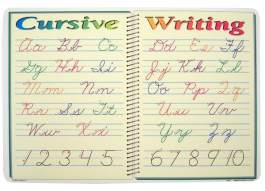 Cursive
Aa Bb Cc
Gg Hh Ii
Mm Nn
Rr Ss Tt
Ww Xx
12345
Writing
Dd Ee Ff
Jj Kk Ll
Oo Pp Qq
Uu Vv
Yy Zz
678910